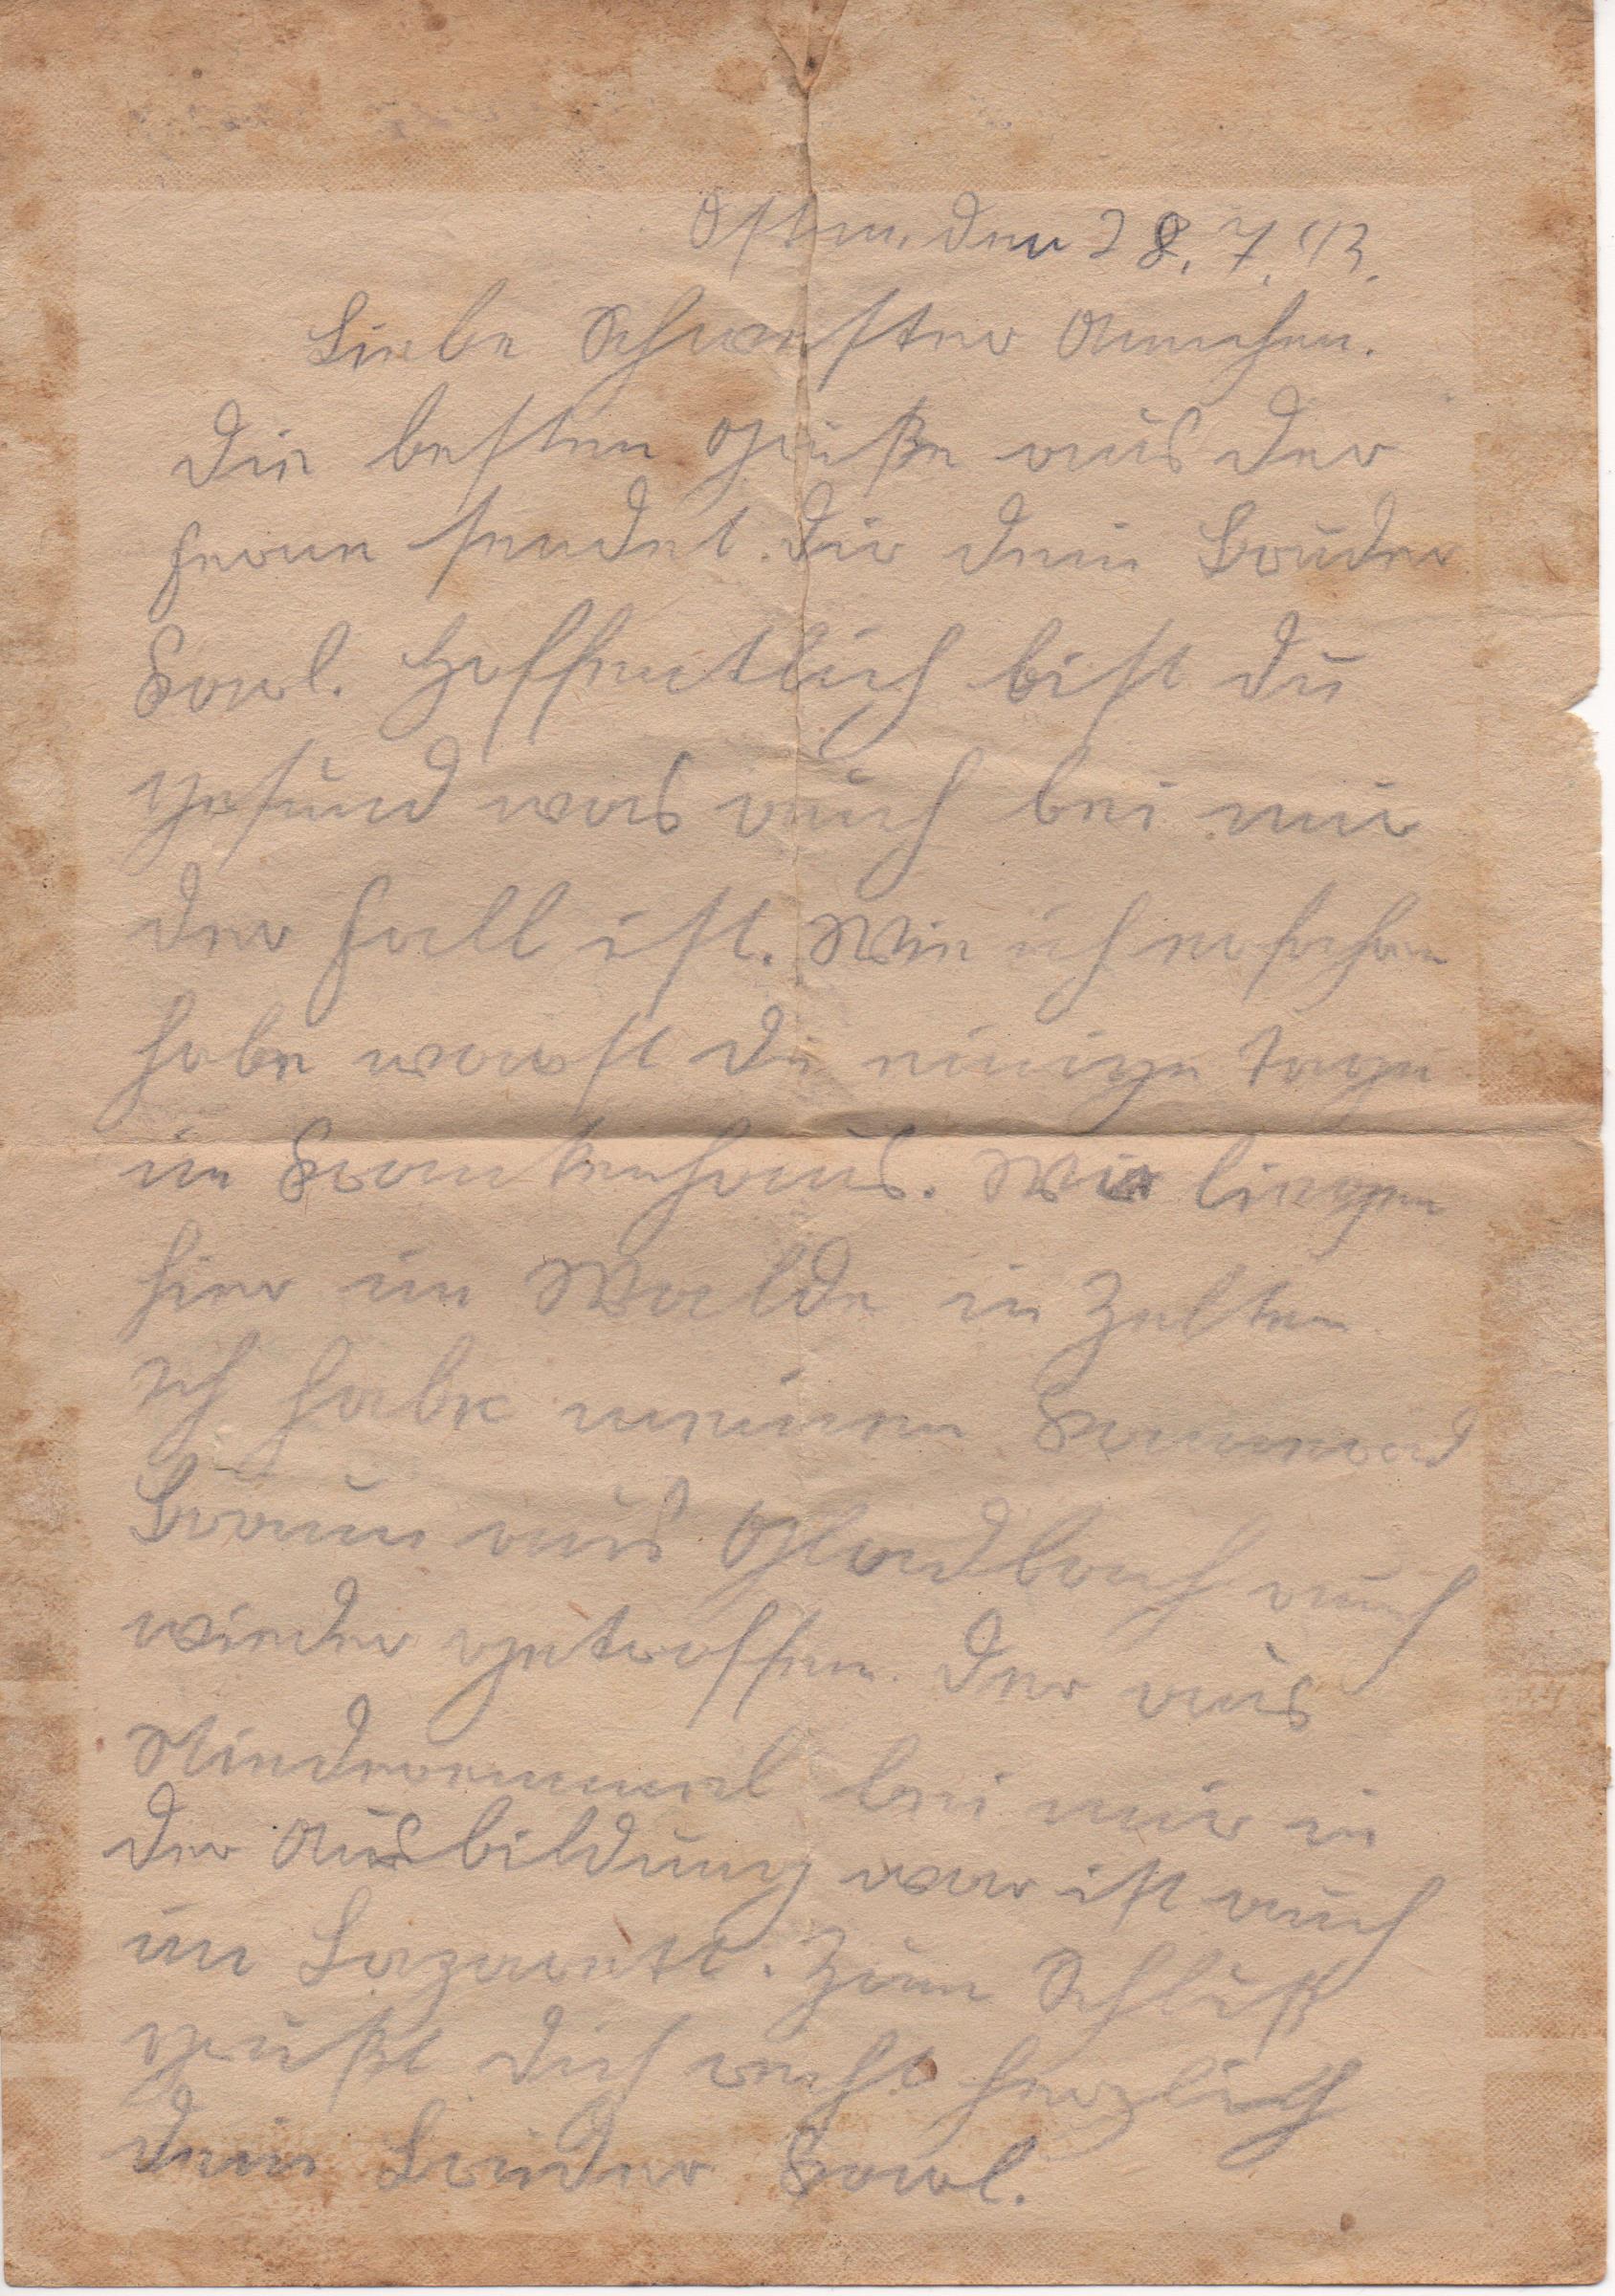 Osten, den 28.7.43.
Liebe Schwester Annchen.
Die besten Grüße aus der
ferne sendet dir dein Bruder
Karl. Hoffentlich bist du
gesund was auch bei mir
der fall ist. Wie ich ersehen
habe warst du einige Tage
im Krankenhaus. Wir liegen
hier im Walde in Zelten
Ich habe meinen Kamerad
Braun aus Gladbach auch
wieder getroffen. Der aus
bei mir in
der Ausbildung war ist auch
im Lazarett. Zum Schluß
grüßt dich recht herzlich
dein Bruder Karl.